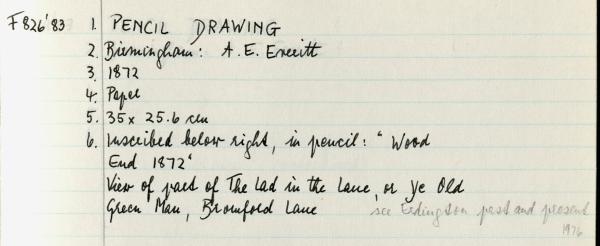 F826'83 1. PENCIL DRAWING
2. Birmingham: A. E. Everitt
3. 1872
4. Paper
5. 35 x 25.6 cm
6. Inscribed below right, in pencil: "Wood
End 1872'
View of part of The Lad in the Lane, or Ye Old
Green Man, Bromford Lane see Erdington past and present
1976